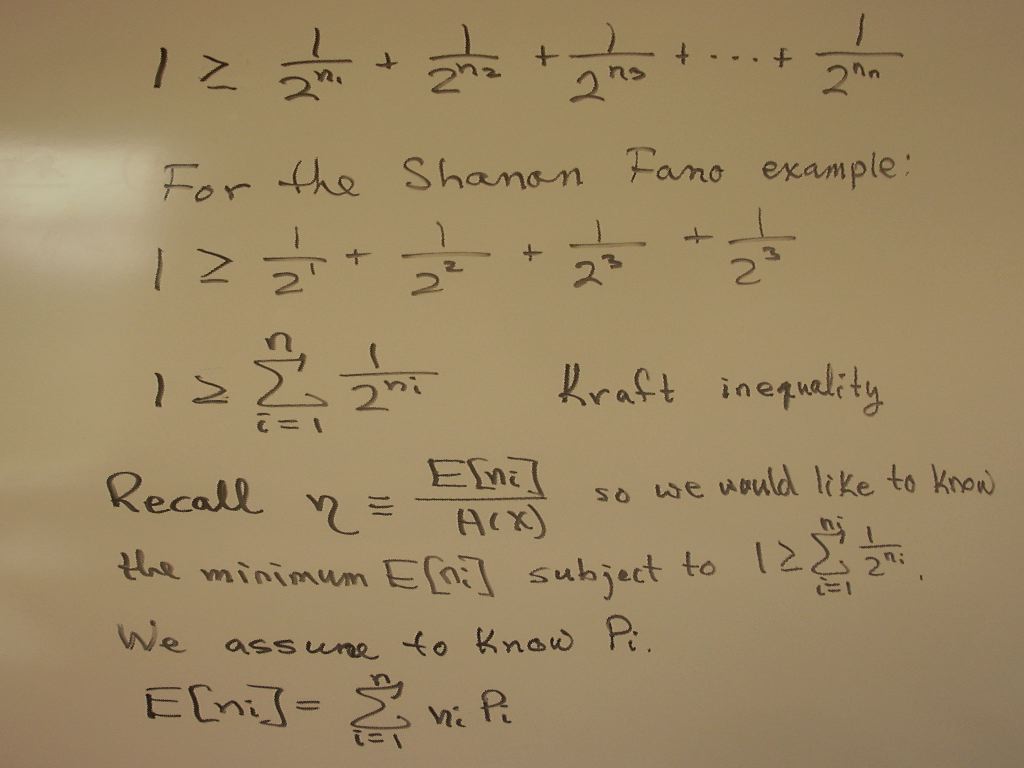 1 ≥ 1/2^n₁ + 1/2^n₂ + 1/2^n₃ + ... + 1/2^nₙ
For the Shanon Fano example:
1 ≥ 1/2^1 + 1/2^2 + 1/2^3 + 1/2^3
1 ≥ ∑_{i=1}^{n} 1/2^{ni} Kraft inequality
Recall η = E[ni]/H(X) so we would like to know
the minimum E[ni] subject to 1 ≥ ∑_{i=1}^{nj} 1/2^{ni}.
We assume to know Pi.
E[ni] = ∑_{i=1}^{n} ni Pi